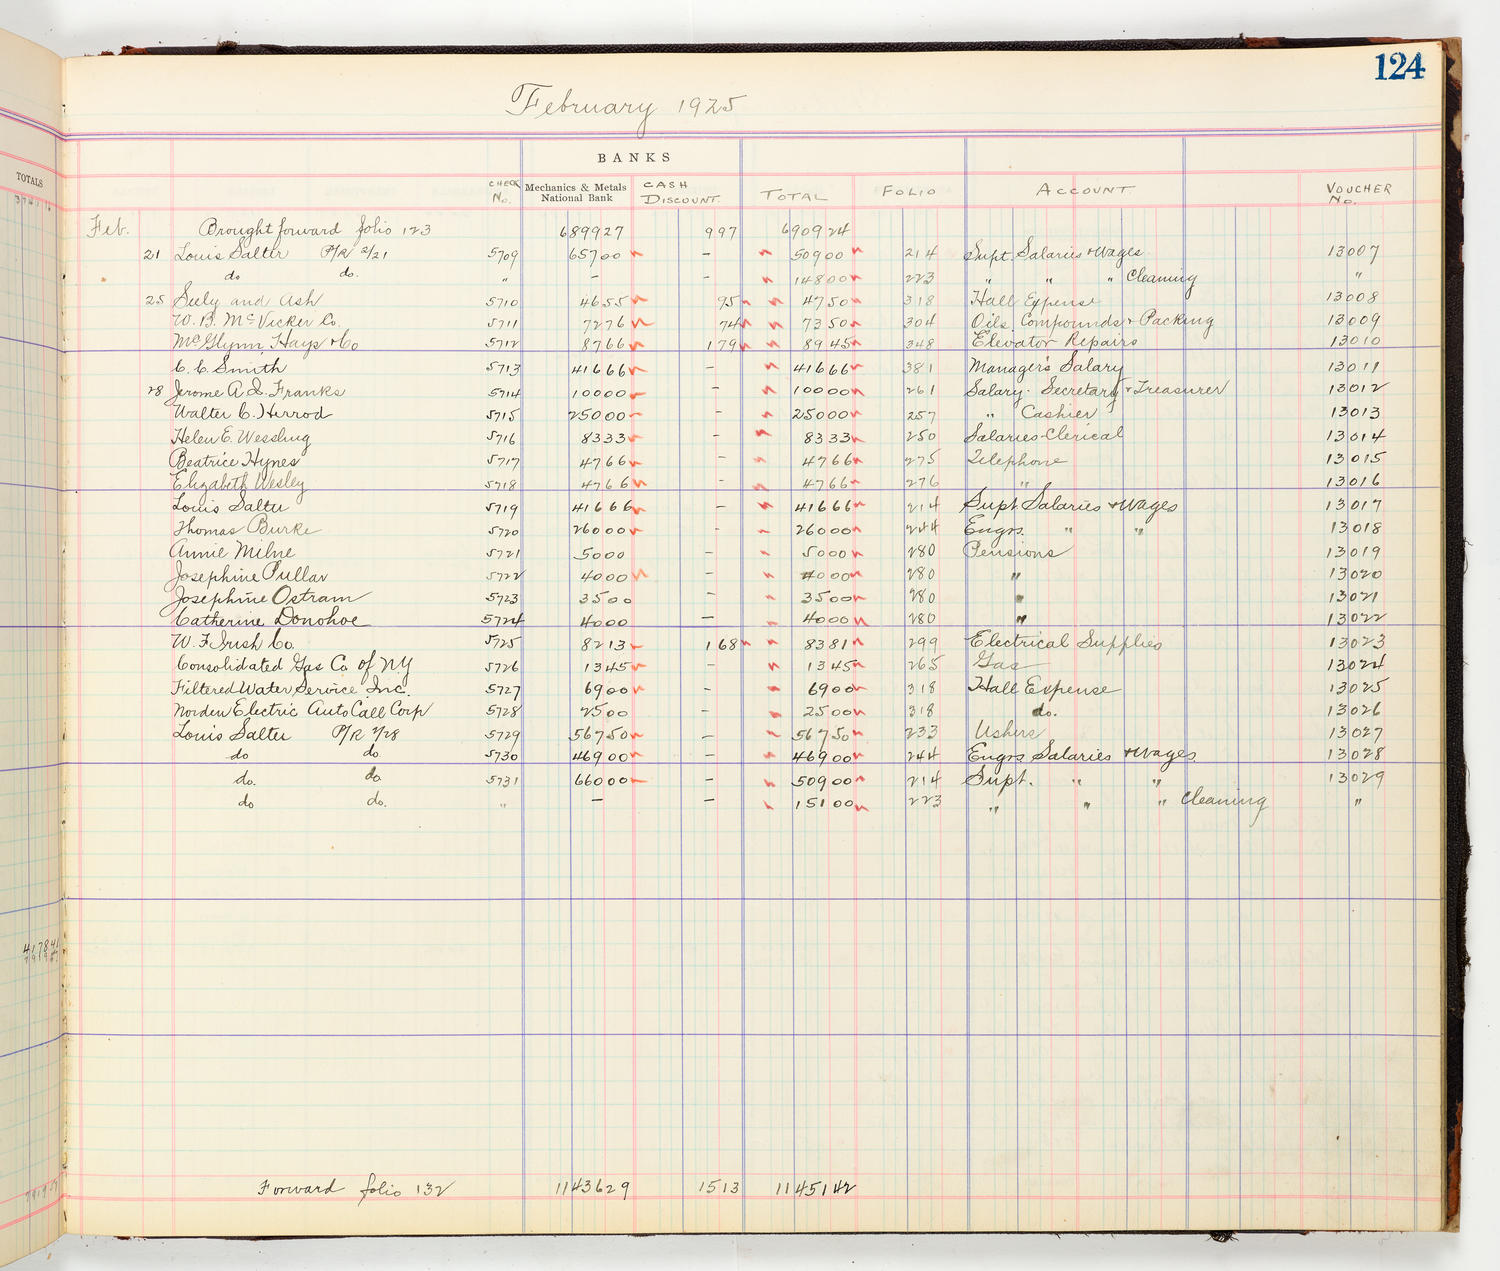 124
February 1925
TOTALS
BANKS
CHECK No. Mechanics & Metals National Bank CASH DISCOUNT TOTAL FOLIO ACCOUNT VOUCHER No.
Feb. Brought forward folio 123 689927 997 690924
21 Louis Salter P/R 2/21 5709 65700 – 50900 214 Supt. Salaries & Wages 13007
do do. " – 14800 223 " " " Cleaning "
25 Seely and Ash 5710 4655 95 4750 318 Hall Expense 13008
W. B. McVicker Co. 5711 7276 74 7350 304 Oils, Compounds & Packing 13009
McGlynn Hays & Co 5712 8766 179 8945 348 Elevator Repairs 13010
C. C. Smith 5713 41666 – 41666 381 Manager's Salary 13011
28 Jerome A. Q. Franks 5714 10000 – 10000 261 Salary. Secretary & Treasurer 13012
Walter C. Herrod 5715 25000 – 25000 257 " Cashier 13013
Helen E. Wessling 5716 8333 – 8333 250 Salaries-Clerical 13014
Beatrice Hynes 5717 4766 – 4766 275 Telephone 13015
Elizabeth Wesley 5718 4766 – 4766 276 " 13016
Louis Salter 5719 41666 – 41666 214 Supt Salaries & Wages 13017
Thomas Burke 5720 26000 – 26000 244 Engrs. " " 13018
Annie Milne 5721 5000 – 5000 280 Pensions 13019
Josephine Pullar 5722 4000 – 4000 280 " 13020
Josephine Ostram 5723 3500 – 3500 280 " 13021
Catherine Donohoe 5724 4000 – 4000 280 " 13022
W. F. Irish Co. 5725 8213 168 8381 299 Electrical Supplies 13023
Consolidated Gas Co of NY 5726 1345 – 1345 265 Gas 13024
Filtered Water Service Inc. 5727 6900 – 6900 318 Hall Expense 13025
Norden Electric Auto Call Corp 5728 2500 – 2500 318 do. 13026
Louis Salter P/R 2/28 5729 56750 – 56750 233 Ushers 13027
do do. 5730 46900 – 46900 244 Engrs Salaries & Wages 13028
do. do. 5731 66000 – 50900 214 Supt. " " 13029
do do. " – – 15100 223 " " " Cleaning "
Forward folio 132 1143629 1513 1145142